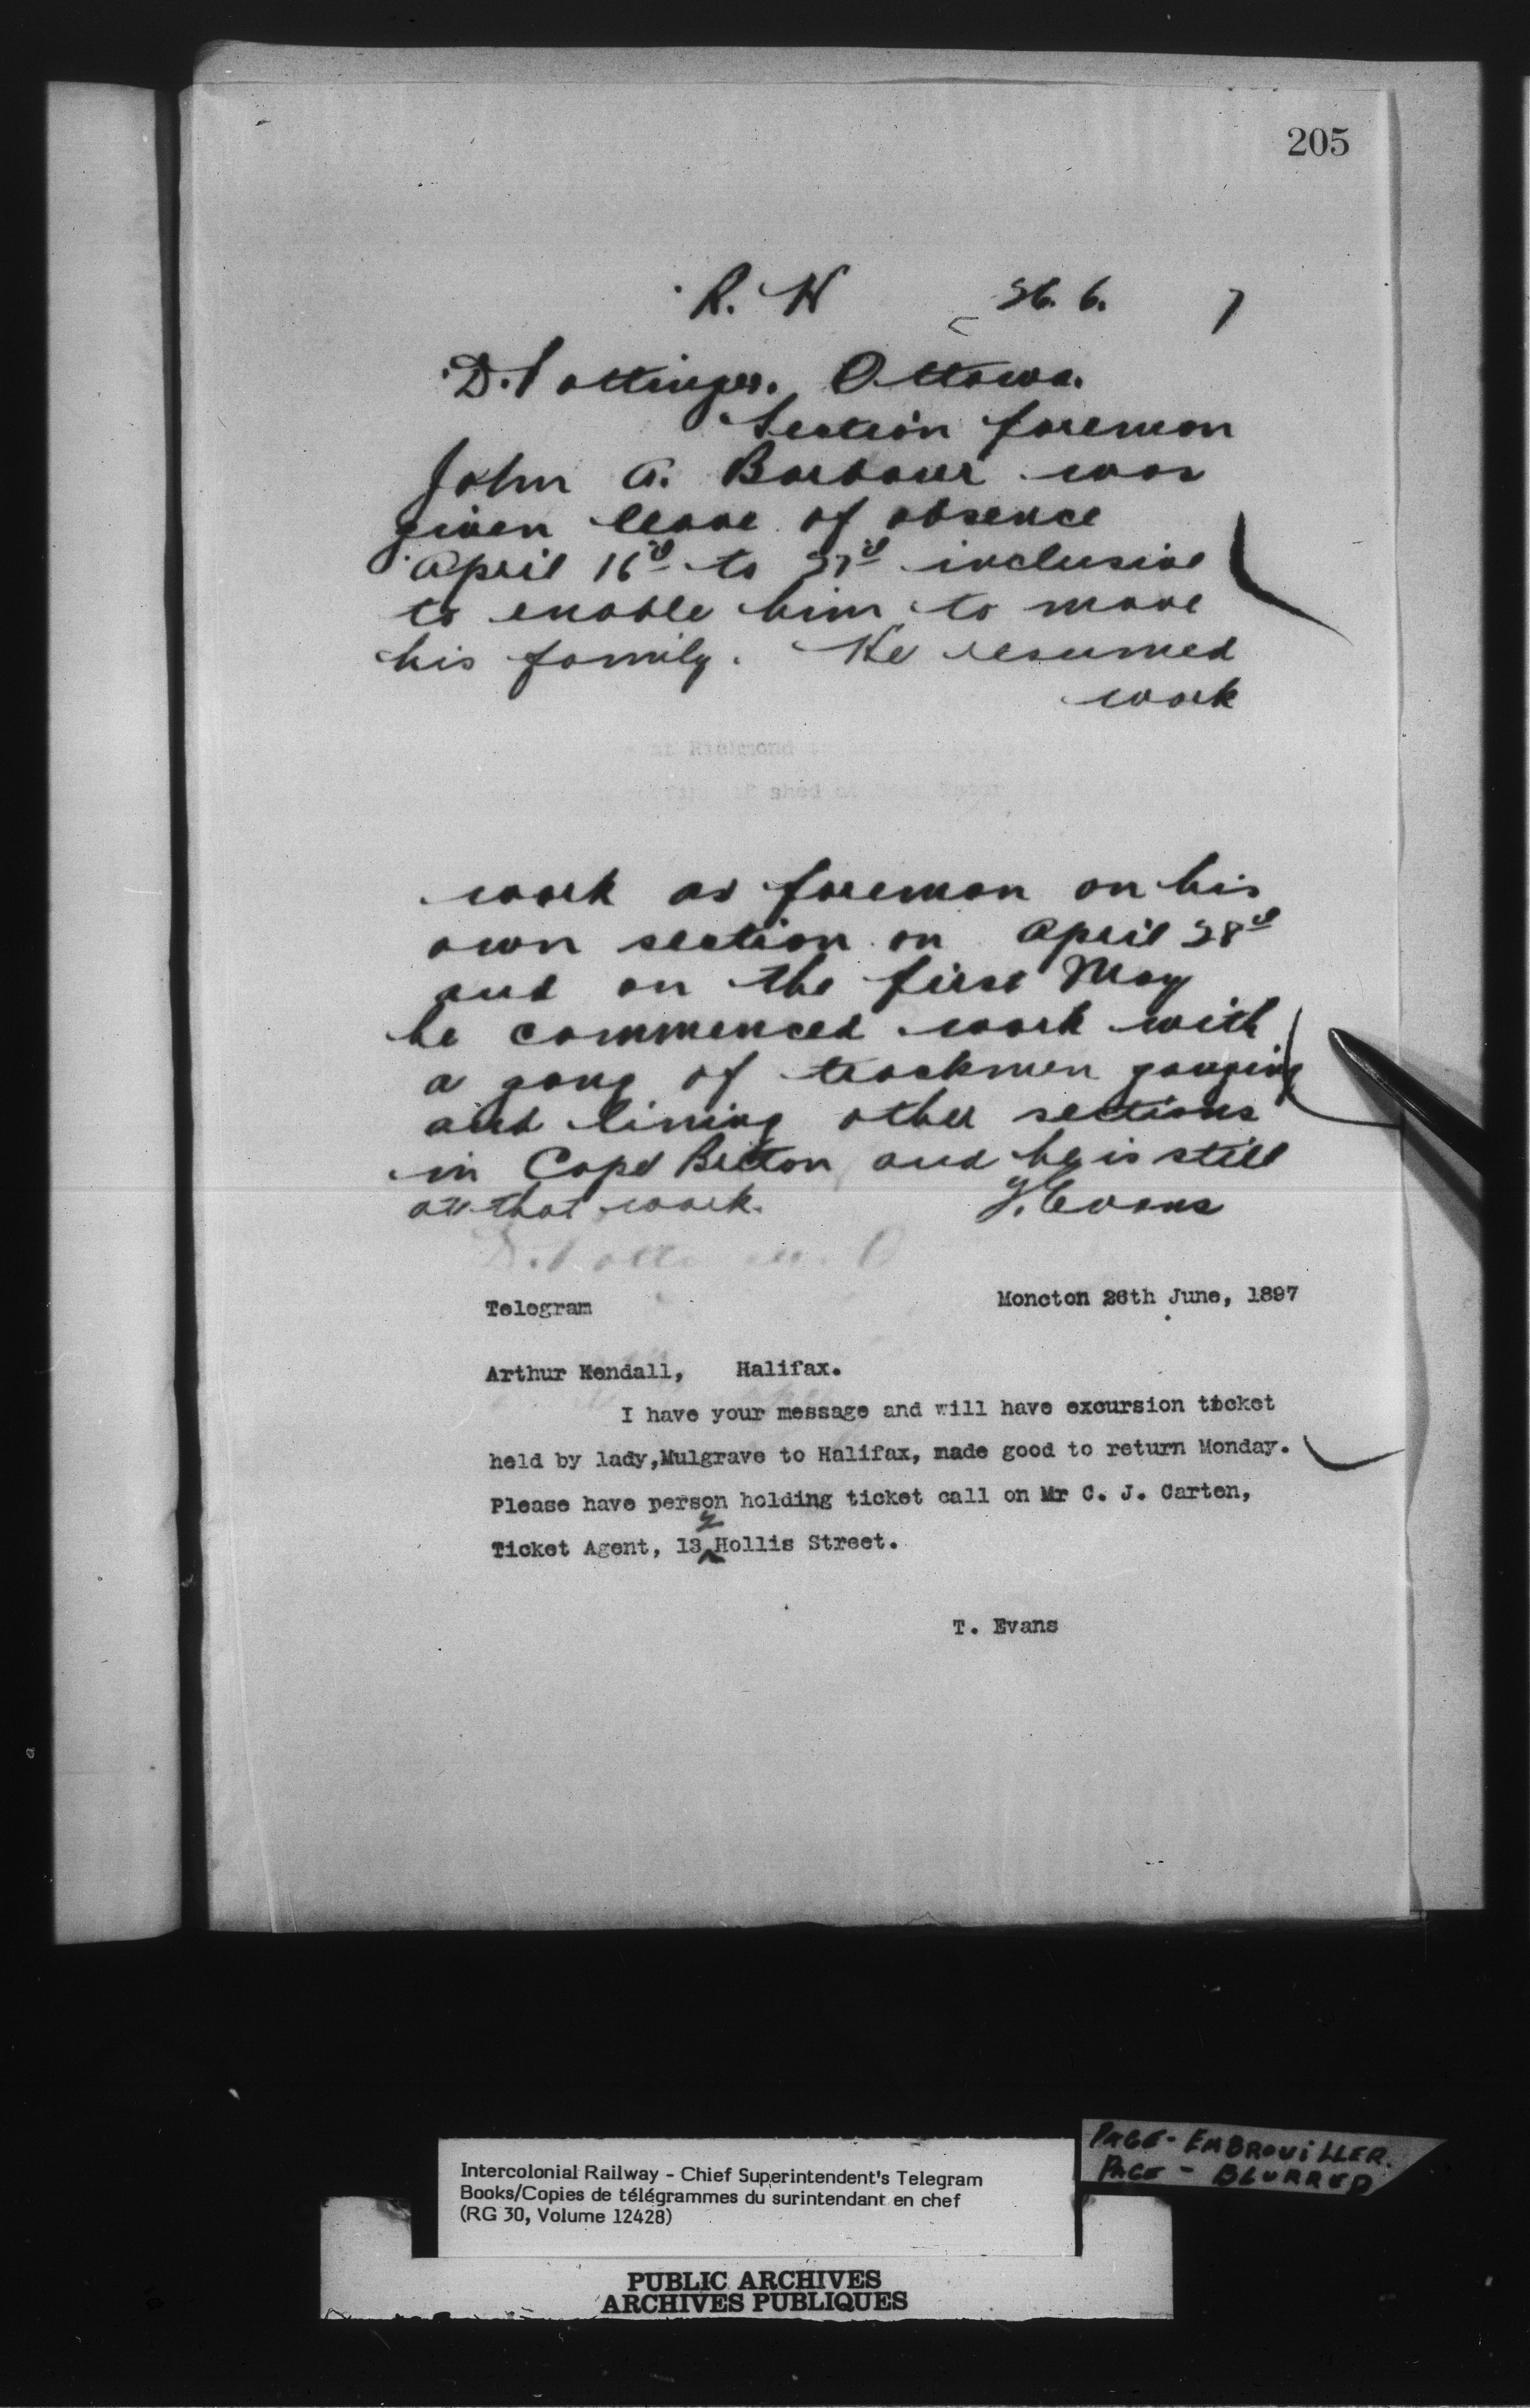 205
R. W 26. 6. 7
D. Pottinger. Ottawa.
Section foreman
John A. Barbour was
given leave of absence
April 16th to 27th inclusive
to enable him to move
his family. He resumed
work
at Richmond
shed
work as foreman on his
own section on April 28th
and on the first May
he commenced work with
a gang of trackmen gauging
and lining other sections
in Cape Breton and he is still
at that work. T. Evans
Telegram Moncton 26th June, 1897
Arthur Kendall, Halifax.
I have your message and will have excursion ticket
held by lady, Mulgrave to Halifax, made good to return Monday.
Please have person holding ticket call on Mr C. J. Carten,
Ticket Agent, 13 Hollis Street.
T. Evans
PAGE - EMBROUILLER.
PAGE - BLURRED
Intercolonial Railway - Chief Superintendent's Telegram
Books/Copies de télégrammes du surintendant en chef
(RG 30, Volume 12428)
PUBLIC ARCHIVES
ARCHIVES PUBLIQUES